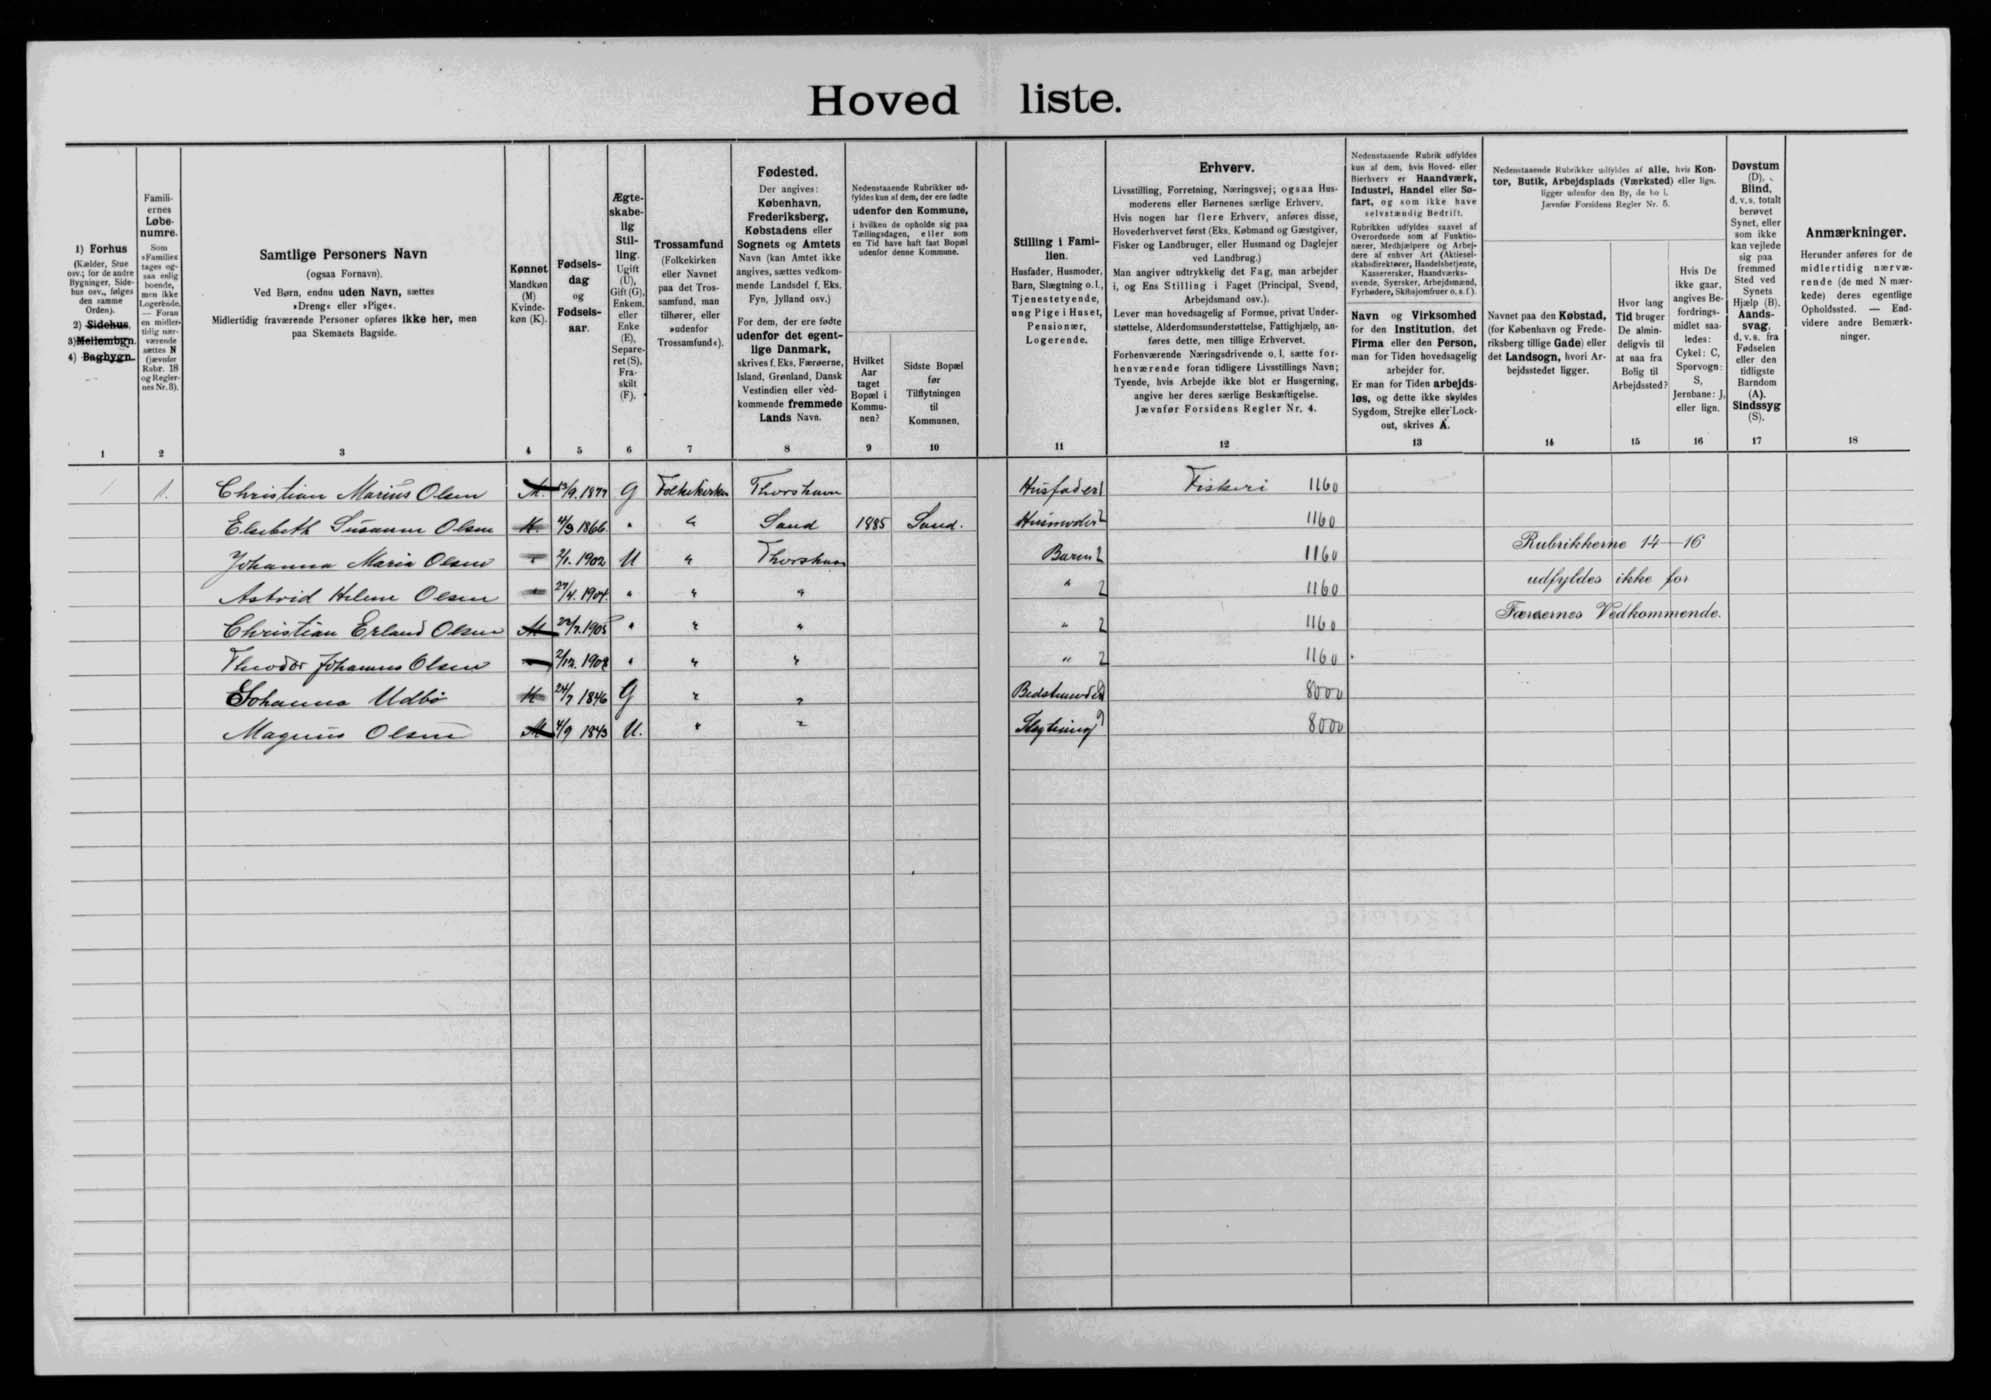 Hoved liste.
1) Forhus
(Kælder, Stue
osv.; for de andre
Bygninger, Side-
hus osv., følges
den samme
Orden).
2) Sidehus,
3) Mellembgn.
4) Bagbygn.
1
Famili-
ernes
Løbe-
numre.
Som
»Familie«
tages og-
saa enlig
boende,
men ikke
Logerende.
— Foran
en midler-
tidig nær-
værende
sættes N
(jævnfør
Rubr. 18
og Regler-
nes Nr. 3).
2
Samtlige Personers Navn
(ogsaa Fornavn).
Ved Børn, endnu uden Navn, sættes
»Dreng« eller »Pige«.
Midlertidig fraværende Personer opføres ikke her, men
paa Skemaets Bagside.
3
Kønnet
Mandkøn
(M)
Kvinde-
køn (K).
4
Fødsels-
dag
og
Fødsels-
aar.
5
Ægte-
skabe-
lig
Stil-
ling.
Ugift
(U),
Gift (G),
Enkem.
eller
Enke
(E),
Separe-
ret (S),
Fra-
skilt
(F).
6
Trossamfund
(Folkekirken
eller Navnet
paa det Tros-
samfund, man
tilhører, eller
»udenfor
Trossamfund«).
7
Fødested.
Der angives:
København,
Frederiksberg,
Købstadens eller
Sognets og Amtets
Navn (kan Amtet ikke
angives, sættes vedkom-
mende Landsdel f. Eks.
Fyn, Jylland osv.)
For dem, der ere fødte
udenfor det egent-
lige Danmark,
skrives f. Eks. Færøerne,
Island, Grønland, Dansk
Vestindien eller ved-
kommende fremmede
Lands Navn.
8
Nedenstaaende Rubrikker ud-
fyldes kun af dem, der ere fødte
udenfor den Kommune,
i hvilken de opholde sig paa
Tællingsdagen, eller som
en Tid have haft fast Bopæl
udenfor denne Kommune.
Hvilket
Aar
taget
Bopæl i
Kommu-
nen?
9
Sidste Bopæl
før
Tilflytningen
til
Kommunen.
10
Stilling i Fami-
lien.
Husfader, Husmoder,
Barn, Slægtning o. l.,
Tjenestetyende,
ung Pige i Huset,
Pensionær,
Logerende.
11
Erhverv.
Livsstilling, Forretning, Næringsvej; ogsaa Hus-
moderens eller Børnenes særlige Erhverv.
Hvis nogen har flere Erhverv, anføres disse,
Hovederhvervet først (Eks. Købmand og Gæstgiver,
Fisker og Landbruger, eller Husmand og Daglejer
ved Landbrug.)
Man angiver udtrykkelig det Fag, man arbejder
i, og Ens Stilling i Faget (Principal, Svend,
Arbejdsmand osv.).
Lever man hovedsagelig af Formue, privat Under-
støttelse, Alderdomsunderstøttelse, Fattighjælp, an-
føres dette, men tillige Erhvervet.
Forhenværende Næringsdrivende o. l. sætte for-
henværende foran tidligere Livsstillings Navn;
Tyende, hvis Arbejde ikke blot er Husgerning,
angive her deres særlige Beskæftigelse.
Jævnfør Forsidens Regler Nr. 4.
12
Nedenstaaende Rubrik udfyldes
kun af dem, hvis Hoved- eller
Bierhverv er Haandværk,
Industri, Handel eller Sø-
fart, og som ikke have
selvstændig Bedrift.
Rubrikken udfyldes saavel af
Overordnede som af Funktio-
nærer, Medhjælpere og Arbej-
dere af enhver Art (Aktiesel-
skabsdirektører, Handelsbetjente,
Kasserersker, Haandværks-
svende, Syersker, Arbejdsmænd,
Fyrbødere, Skibsjomfruer o. s. f.).
Navn og Virksomhed
for den Institution, det
Firma eller den Person,
man for Tiden hovedsagelig
arbejder for.
Er man for Tiden arbejds-
løs, og dette ikke skyldes
Sygdom, Strejke eller Lock-
out, skrives A.
13
Nedenstaaende Rubrikker udfyldes af alle, hvis Kon-
tor, Butik, Arbejdsplads (Værksted) eller lign.
ligger udenfor den By, de bo i.
Jævnfør Forsidens Regler Nr. 5.
Navnet paa den Købstad,
(for København og Frede-
riksberg tillige Gade) eller
det Landsogn, hvori Ar-
bejdsstedet ligger.
14
Hvor lang
Tid bruger
De almin-
deligvis til
at naa fra
Bolig til
Arbejdssted?
15
Hvis De
ikke gaar,
angives Be-
fordrings-
midlet saa-
ledes:
Cykel: C,
Sporvogn:
S,
Jernbane: J,
eller lign.
16
Døvstum
(D),
Blind,
d. v. s. totalt
berøvet
Synet, eller
som ikke
kan vejlede
sig paa
fremmed
Sted ved
Synets
Hjælp (B).
Aands-
svag,
d. v. s. fra
Fødselen
eller den
tidligste
Barndom
(A).
Sindssyg
(S).
17
Anmærkninger.
Herunder anføres for de
midlertidig nærvæ-
rende (de med N mær-
kede) deres egentlige
Opholdssted. — End-
videre andre Bemærk-
ninger.
18
1 1. Christian Marius Olsen M. 13/9. 1877 G Folkekirken Thorshavn Husfader 1 Fiskeri 1160
Elsebeth Susanne Olsen K. /3 1866 " " Sand 1885 Sand. Husmoder 2 1160
Johanna Maria Olsen " 2/1. 1902 U " Thorshavn Barn 2 1160
Astrid Helene Olsen " 27/4. 1904. " " " " 2 1160
Christian Erland Olsen M 22/7. 1905 " " " " 2 1160
Theodor Johannes Olsen " 2/12. 1907 " " " " 2 1160
Johanna Udbø K 24/7 1846 G " " Bedstemoder 8000
Magnus Olsen M 4/9 1843 U. " " Slægtning 9 8000
Rubrikkerne 14—16
udfyldes ikke for
Færøernes Vedkommende.